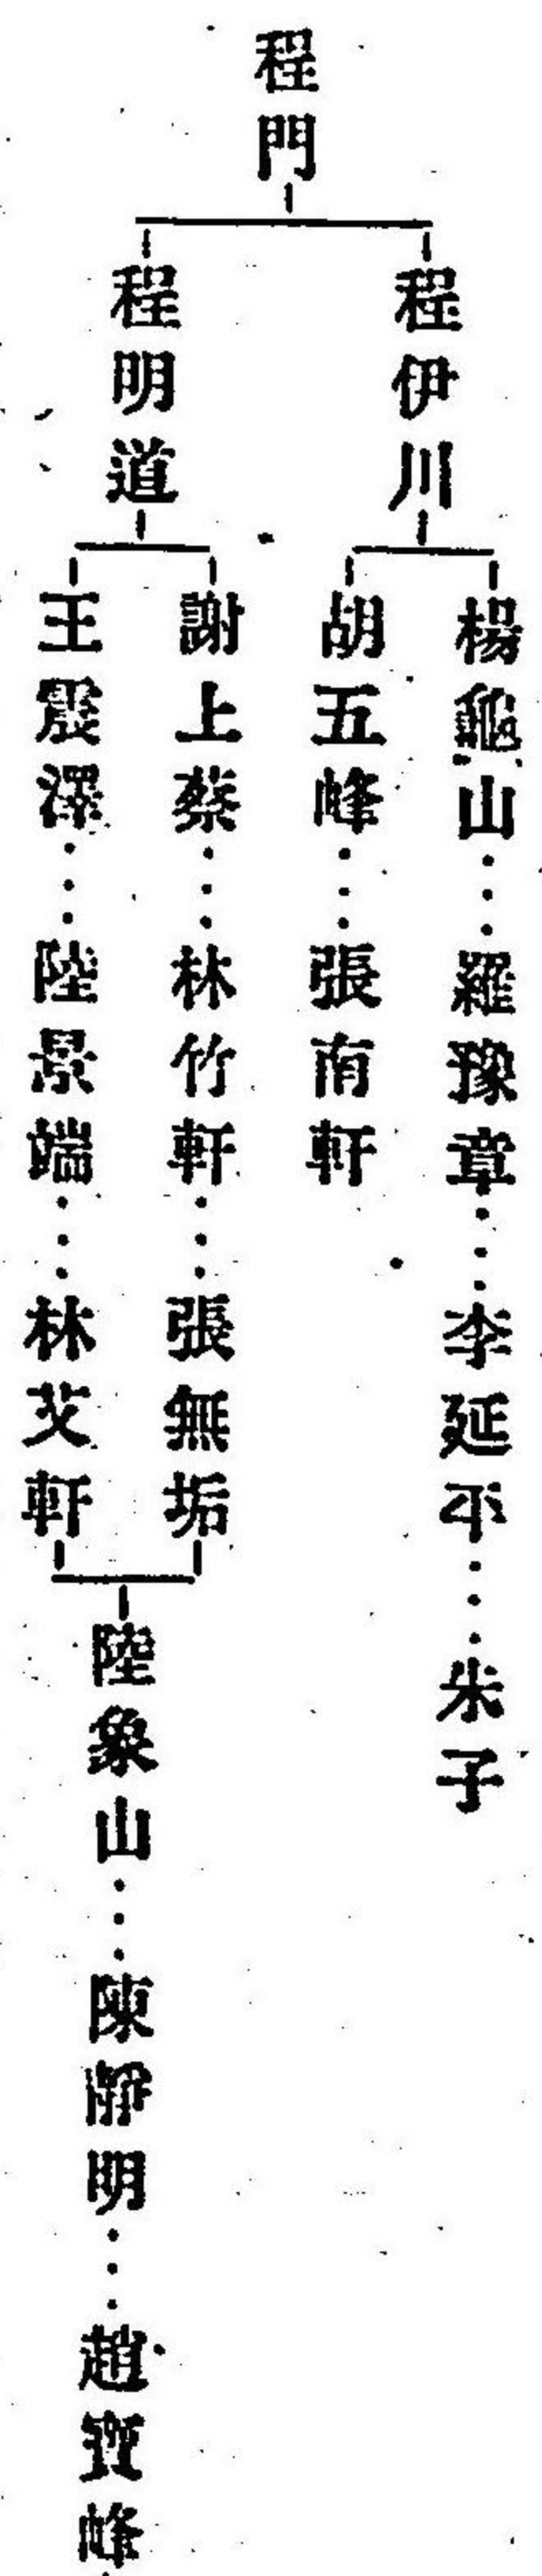 程門
程伊川
楊龜山…羅豫章…李延平…朱子
胡五峰…張南軒
程明道
謝上蔡…林竹軒…張無垢
王震澤…陸景端…林艾軒
陸象山…陳靜明…趙寶峰